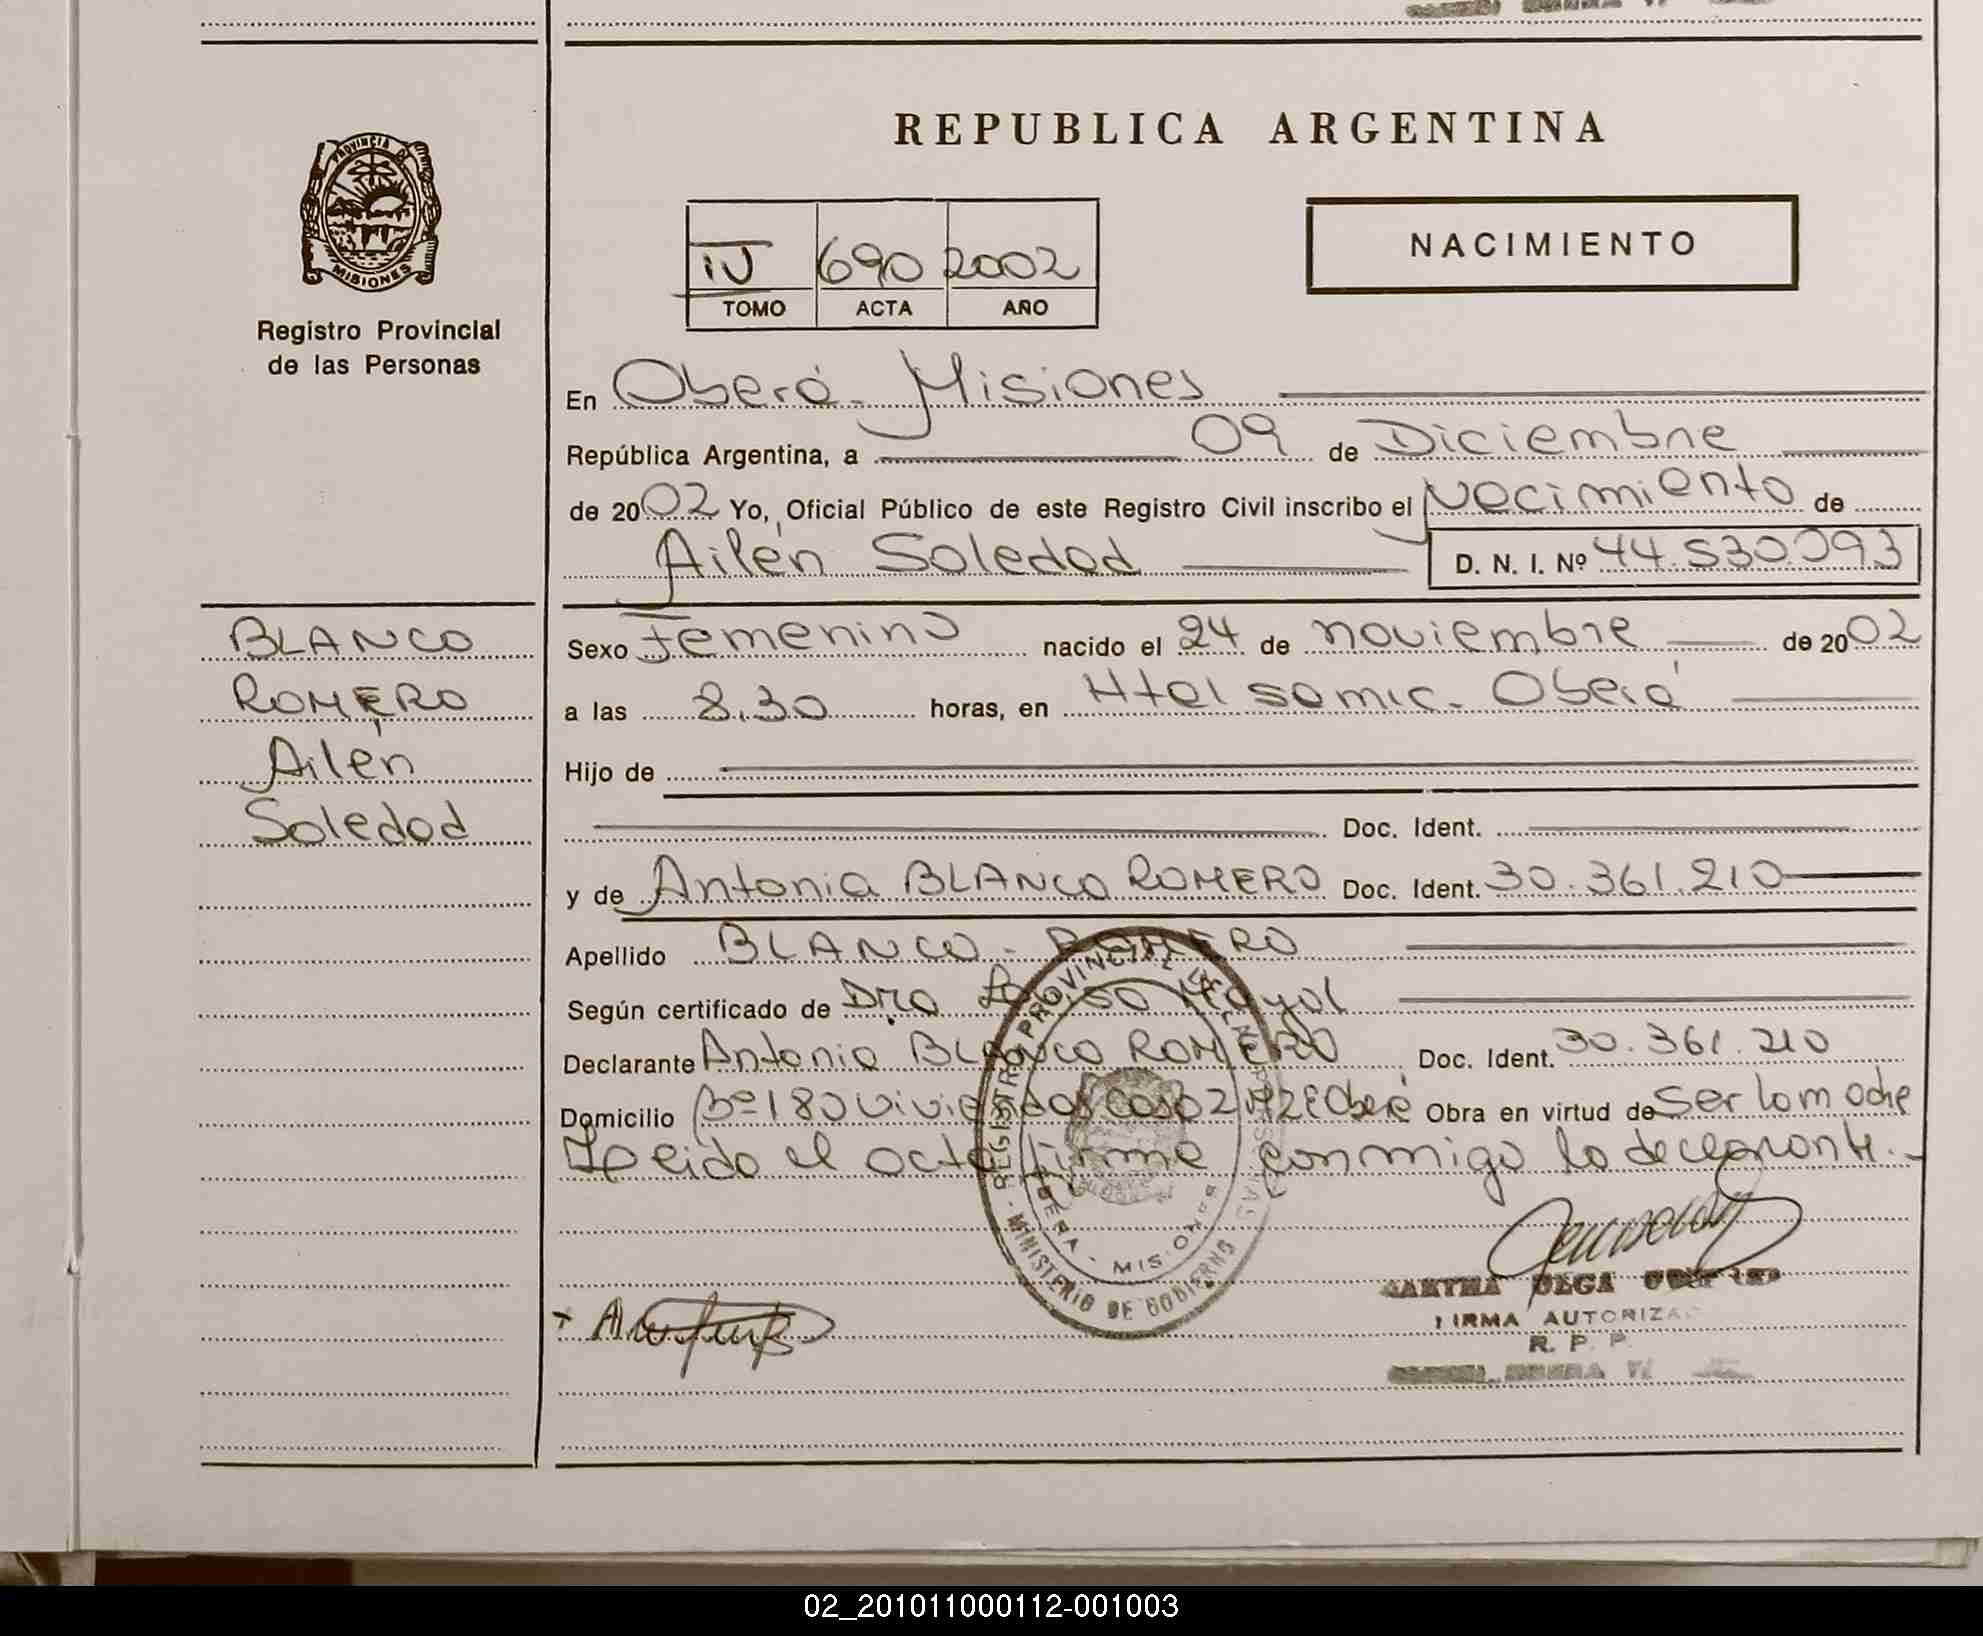 PROVINCIA DE
MISIONES
Registro Provincial
de las Personas
BLANCO
ROMERO
Ailén
Soledad
REPUBLICA ARGENTINA
IV 690 2002
TOMO ACTA AÑO
NACIMIENTO
En Oberá - Misiones
República Argentina, a 09 de Diciembre
de 2002 Yo, Oficial Público de este Registro Civil inscribo el Nacimiento de
Ailén Soledad D. N. I. Nº 44.530.093
Sexo femenino nacido el 24 de noviembre de 2002
a las 8.30 horas, en Htal samic. Oberá
Hijo de
Doc. Ident.
y de Antonia BLANCO ROMERO Doc. Ident. 30.361.210
Apellido BLANCO - ROMERO
Según certificado de Dra Mayol
Declarante Antonia BLANCO ROMERO Doc. Ident. 30.361.210
Domicilio Bº 180 viviendas casa 2 Mz E Oberá Obra en virtud de Ser la madre
Leida el acta firma conmigo la declarante.-
REGISTRO PROVINCIAL DE LAS PERSONAS
MINISTERIO DE GOBIERNO
OBERA - MISIONES
MARTHA OLGA
FIRMA AUTORIZADA
R. P. P.
02_201011000112-001003